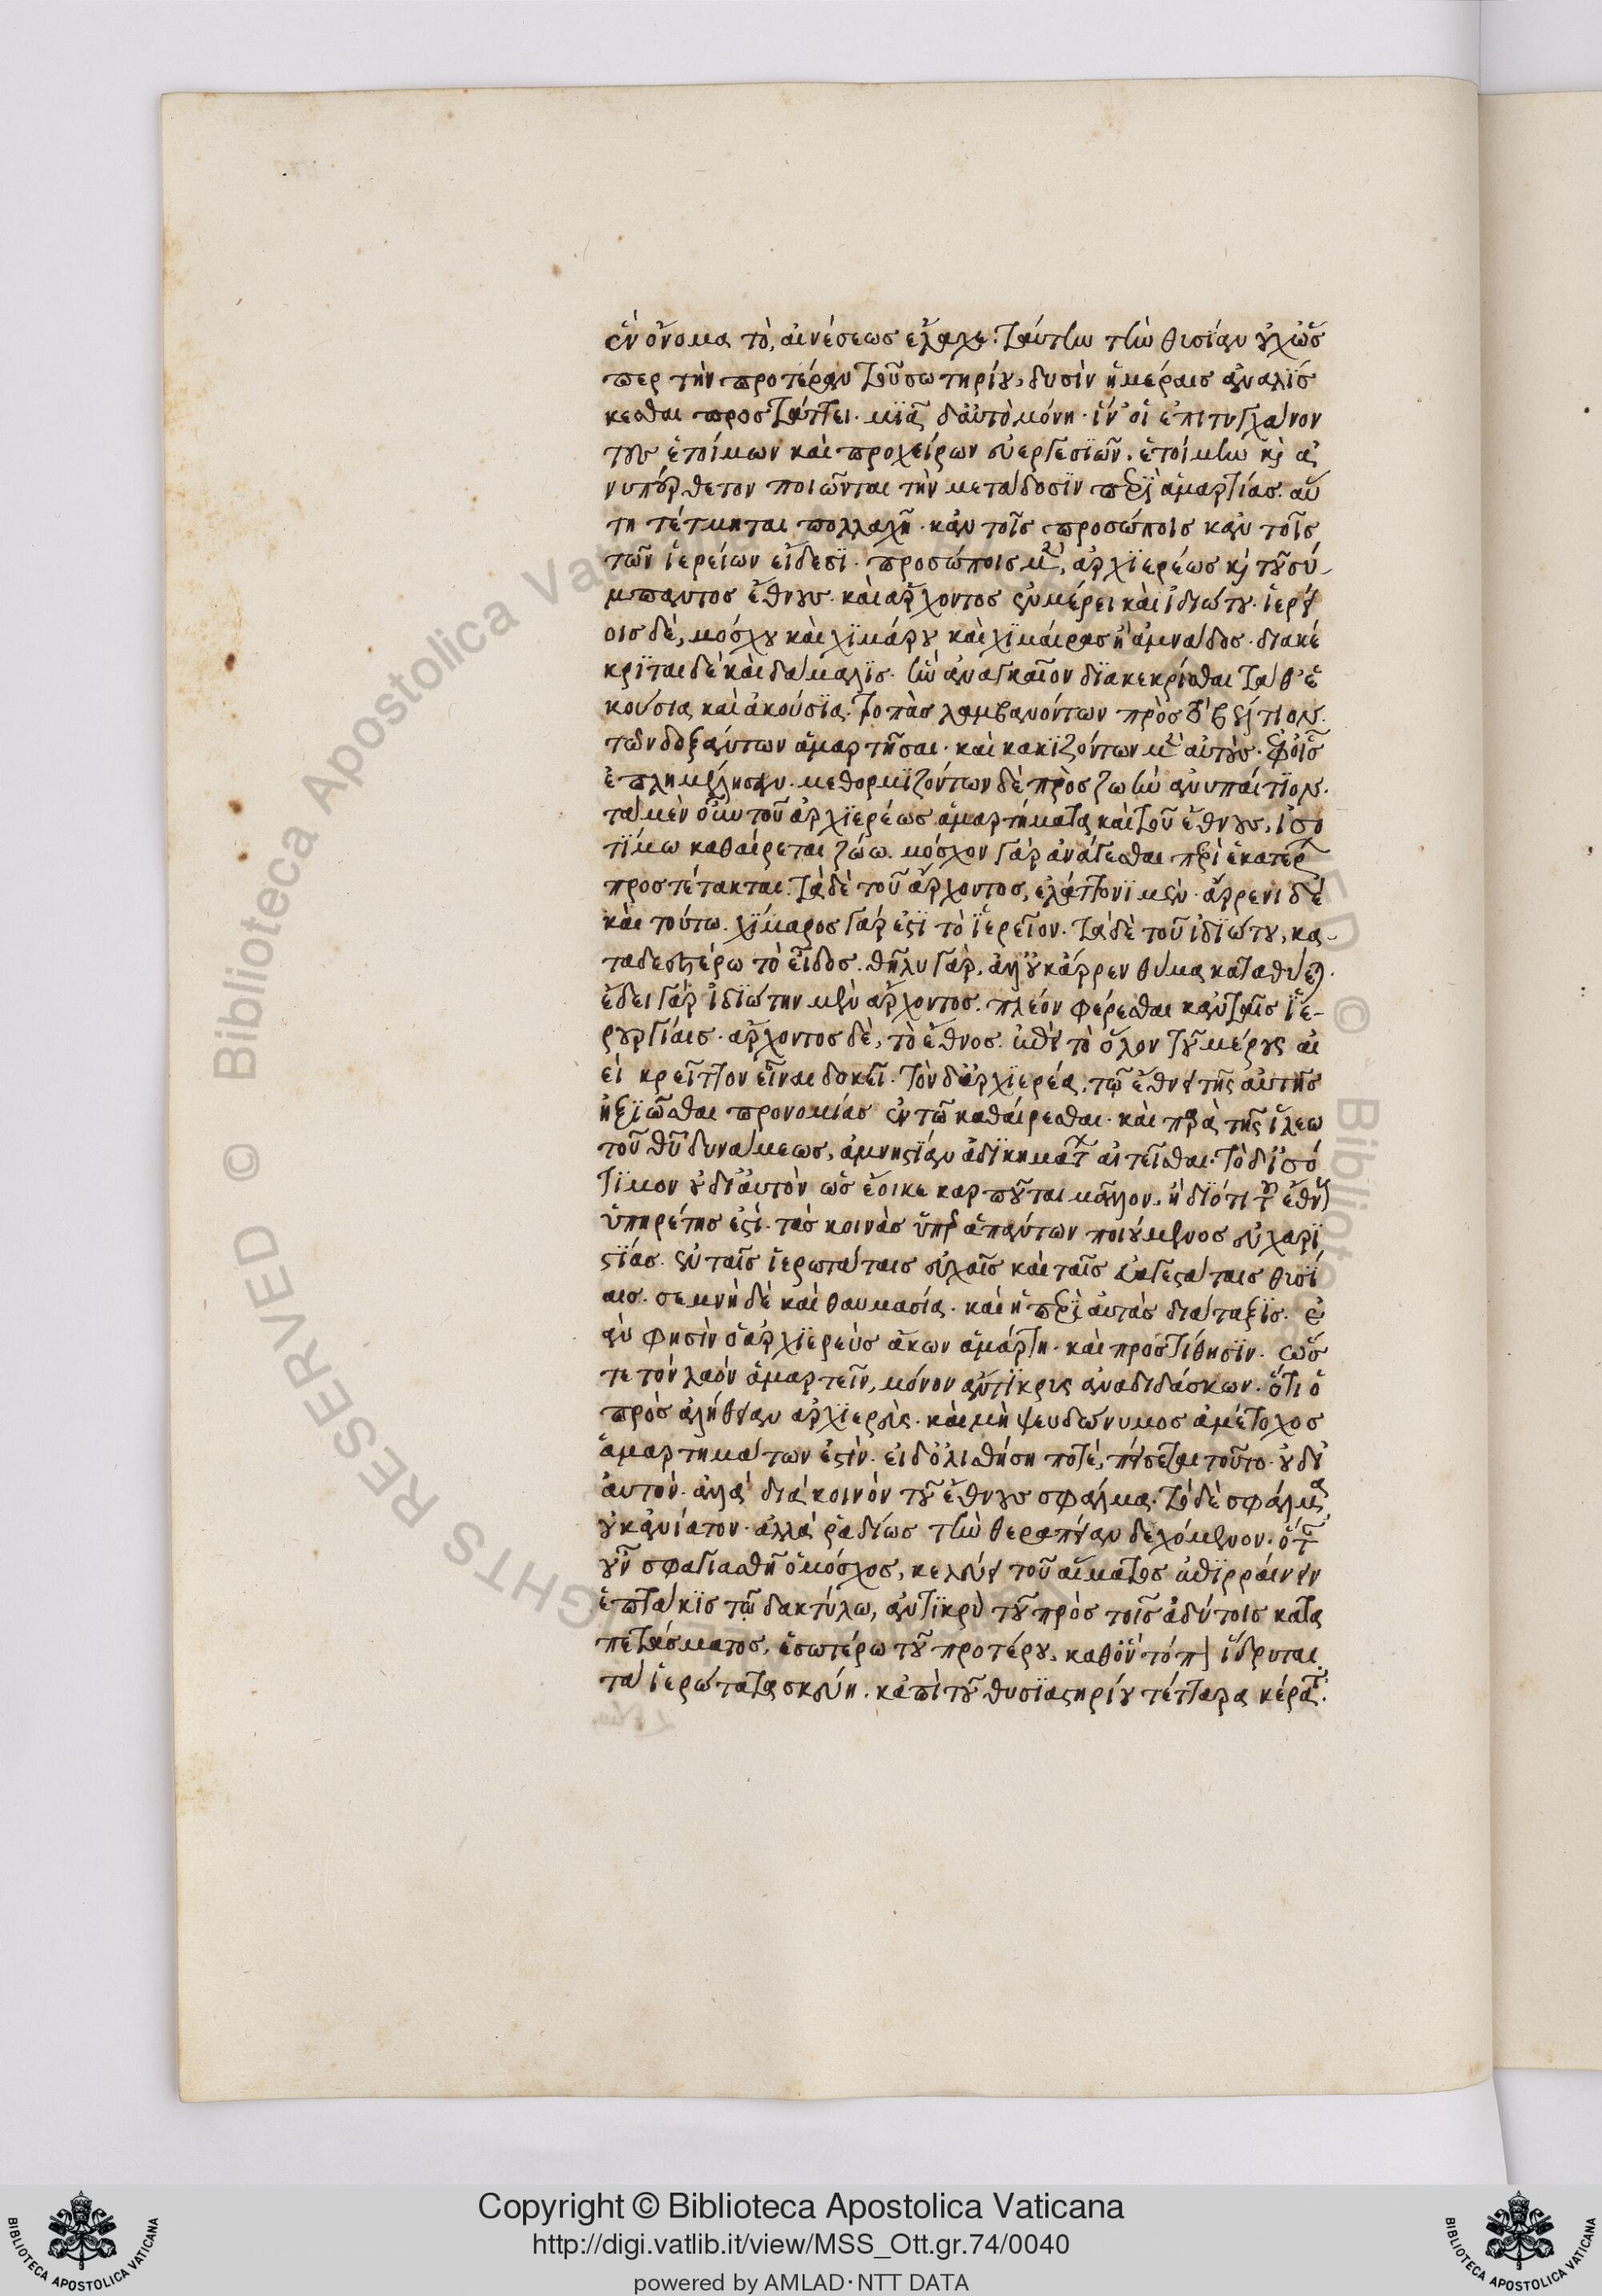 ἓν ὄνομα τὸ, αἰνέσεως ἔλαχε. ταύτην τὴν θυσίαν οὐχ ὥς
περ τὴν προτέραν τοῦ σωτηρίου, δυσὶν ἡμέραις ἀναλίσ
κεσθαι προστάττει. μιᾷ δ' αὐτὸ μόνῃ. ἵν' οἱ ἐπιτυγχάνον
τες ἑτοίμων καὶ προχείρων εὐεργεσιῶν. ἑτοίμην καὶ ἀ
νυπέρθετον ποιῶνται τὴν μετάδοσιν περὶ ἁμαρτίας. αὕ
τη τέτμηται πολλαχῆ. κἀν τοῖς προσώποις κἀν τοῖς
τῶν ἱερείων εἴδεσι. προσώποις μὲν, ἀρχιερέως καὶ τοῦ σύ
μπαντος ἔθνους. καὶ ἄρχοντος ἐν μέρει καὶ ἰδιώτου. ἱερεί
οις δὲ, μόσχου καὶ χιμάρου καὶ χιμαίρας ἢ ἀμνάδος. διακέ
κριται δὲ καὶ δάμαλις. ἣν ἀναγκαῖον διακεκρίσθαι τά θ' ἑ
κούσια καὶ ἀκούσια. τροπὰς λαμβανόντων πρὸς τὸ βέλτιον.
τῶν δοξάντων ἁμαρτῆσαι. καὶ κακιζόντων μὲν αὑτοὺς. ἐφ' οἷς
ἐπλημμέλησαν. μεθορμιζόντων δὲ πρὸς ζωὴν ἀνυπαίτιον.
τὰ μὲν οὖν τοῦ ἀρχιερέως ἁμαρτήματα καὶ τοῦ ἔθνους, ἰσο
τίμω καθαίρεται ζώω. μόσχον γὰρ ἀνάγεσθαι περὶ ἑκατέρων
προστέτακται. τὰ δὲ τοῦ ἄρχοντος, ἐλάττονι μὲν. ἄρρενι δὲ
καὶ τούτω. χίμαρος γάρ ἐστι τὸ ἱερεῖον. τὰ δὲ τοῦ ἰδιώτου, κα
ταδεεστέρω τὸ εἶδος. θῆλυ γὰρ, ἀλλ' οὐκ ἄρρεν θῦμα καταθύεται.
ἔδει γὰρ ἰδιώτην μὲν ἄρχοντος. πλέον φέρεσθαι κἀν ταῖς ἱε
ρουργίαις. ἄρχοντος δὲ, τὸ ἔθνος. ἐπεὶ τὸ ὅλον τοῦ μέρους αἰ
εὶ κρεῖττον εἶναι δοκεῖ. τὸν δ' ἀρχιερέα, τῷ ἔθνει τῆς αὐτῆς
ἠξιῶσθαι προνομίας ἐν τῷ καθαίρεσθαι. καὶ παρὰ τῆς ἵλεω
τοῦ θεοῦ δυνάμεως, ἀμνηστίαν ἀδικημάτων αἰτεῖσθαι. τὸ δ' ἰσό
τιμον οὐ δι' αὑτὸν ὡς ἔοικε καρποῦται μᾶλλον, ἢ διότι τοῦ ἔθνους
ὑπηρέτης ἐστὶ. τὰς κοινὰς ὑπὲρ ἁπάντων ποιούμενος εὐχαρι
στίας. ἐν ταῖς ἱερωτάταις εὐχαῖς καὶ ταῖς εὐαγεστάταις θυσί
αις. σεμνὴ δὲ καὶ θαυμασία. καὶ ἡ περὶ αὐτὰς διάταξις. ἐ
ὰν φησὶν ὁ ἀρχιερεὺς ἄκων ἁμάρτῃ. καὶ προστίθησιν. ὥσ
τε τὸν λαὸν ἁμαρτεῖν, μόνον ἄντικρυς ἀναδιδάσκων. ὅτι ὁ
πρὸς ἀλήθειαν ἀρχιερεὺς. καὶ μὴ ψευδώνυμος ἀμέτοχος
ἁμαρτημάτων ἐστὶν. εἰ δ' ὀλισθήσῃ ποτὲ, πείσεται τοῦτο. οὐ δι'
αὑτὸν. ἀλλὰ διὰ κοινὸν τοῦ ἔθνους σφάλμα. τὸ δὲ σφάλμα
οὐκ ἀνίατον. ἀλλὰ ῥαδίως τὴν θεραπείαν δεχόμενον. ὅταν
οὖν σφαγιασθῇ ὁ μόσχος, κελεύει τοῦ αἵματος ἐπιρραίνειν
ἑπτάκις τῷ δακτύλω, ἀντικρὺ τοῦ πρὸς τοῖς ἀδύτοις κατα
πετάσματος, ἐσωτέρω τοῦ προτέρου, καθ' ὃν τόπον ἵδρυται
τὰ ἱερώτατα σκεύη. κἀπὶ τοῦ θυσιαστηρίου τέτταρα κέρατα.
Copyright © Biblioteca Apostolica Vaticana
http://digi.vatlib.it/view/MSS_Ott.gr.74/0040
powered by AMLAD·NTT DATA